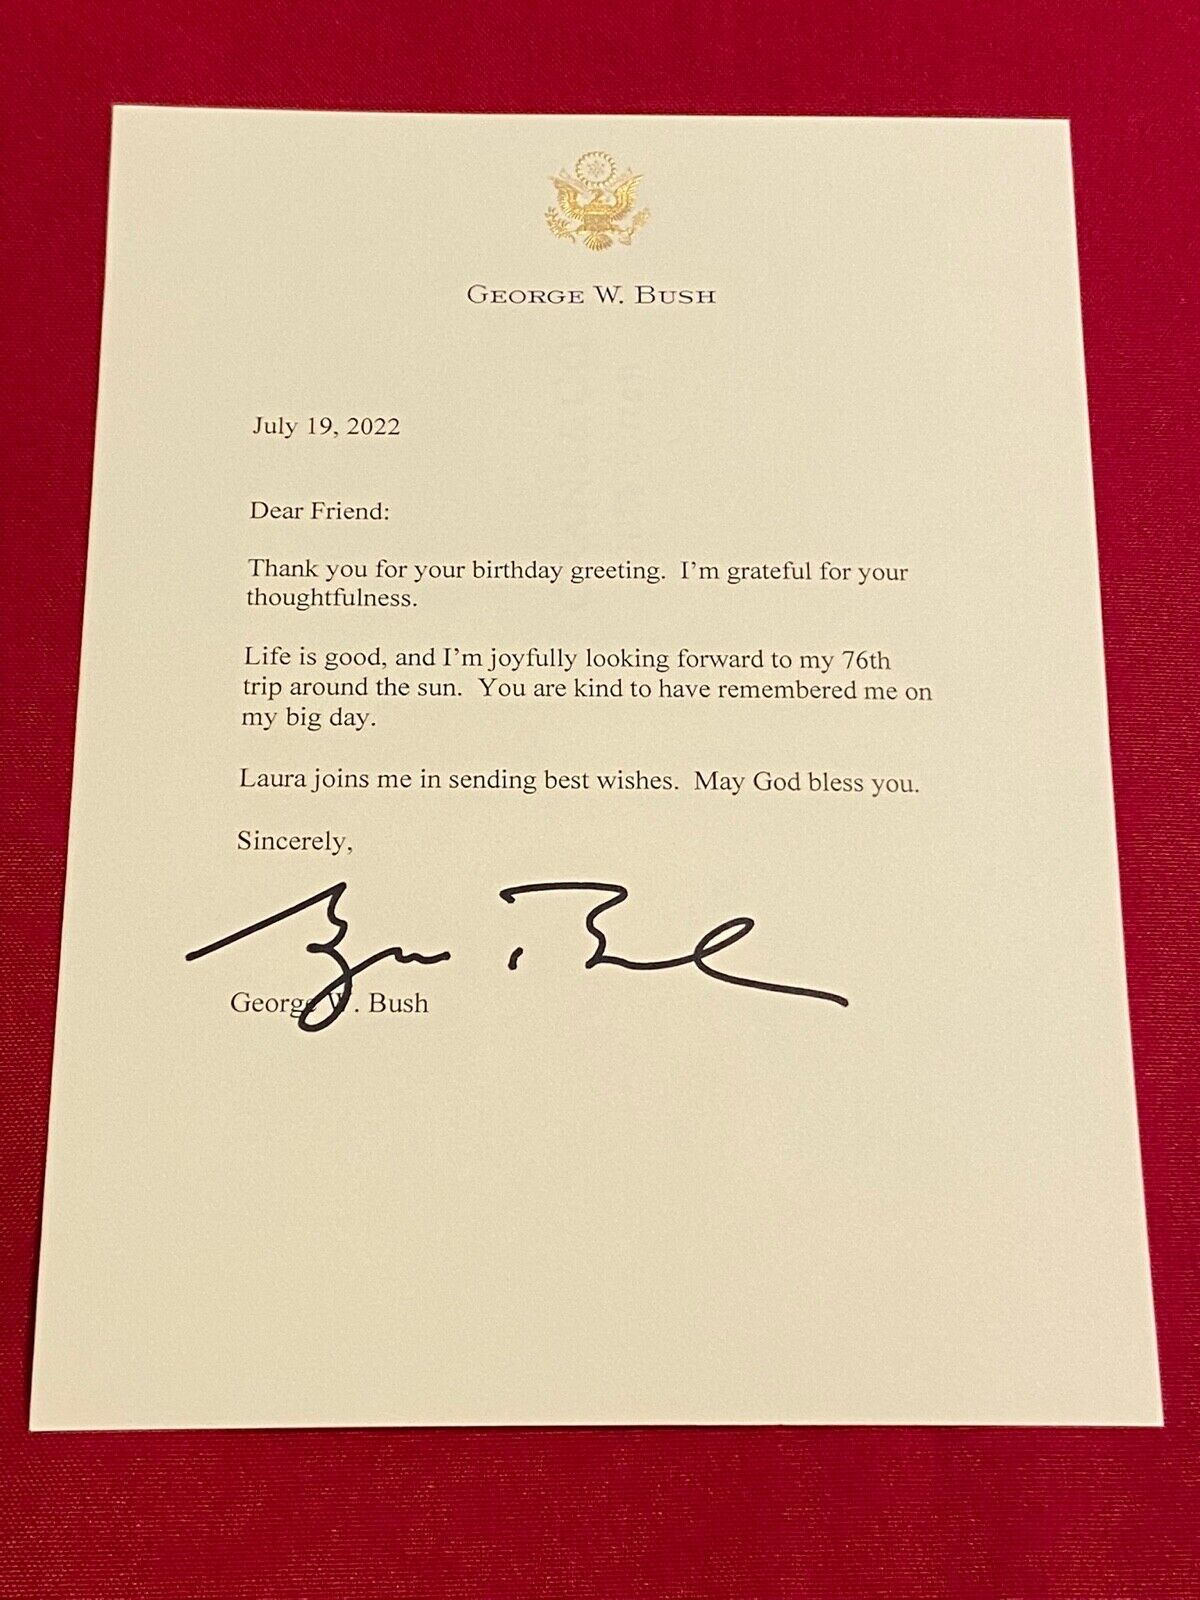 GEORGE W. BUSH
July 19, 2022
Dear Friend:
Thank you for your birthday greeting.  I'm grateful for your
thoughtfulness.
Life is good, and I'm joyfully looking forward to my 76th
trip around the sun.  You are kind to have remembered me on
my big day.
Laura joins me in sending best wishes.  May God bless you.
Sincerely,
George W. Bush